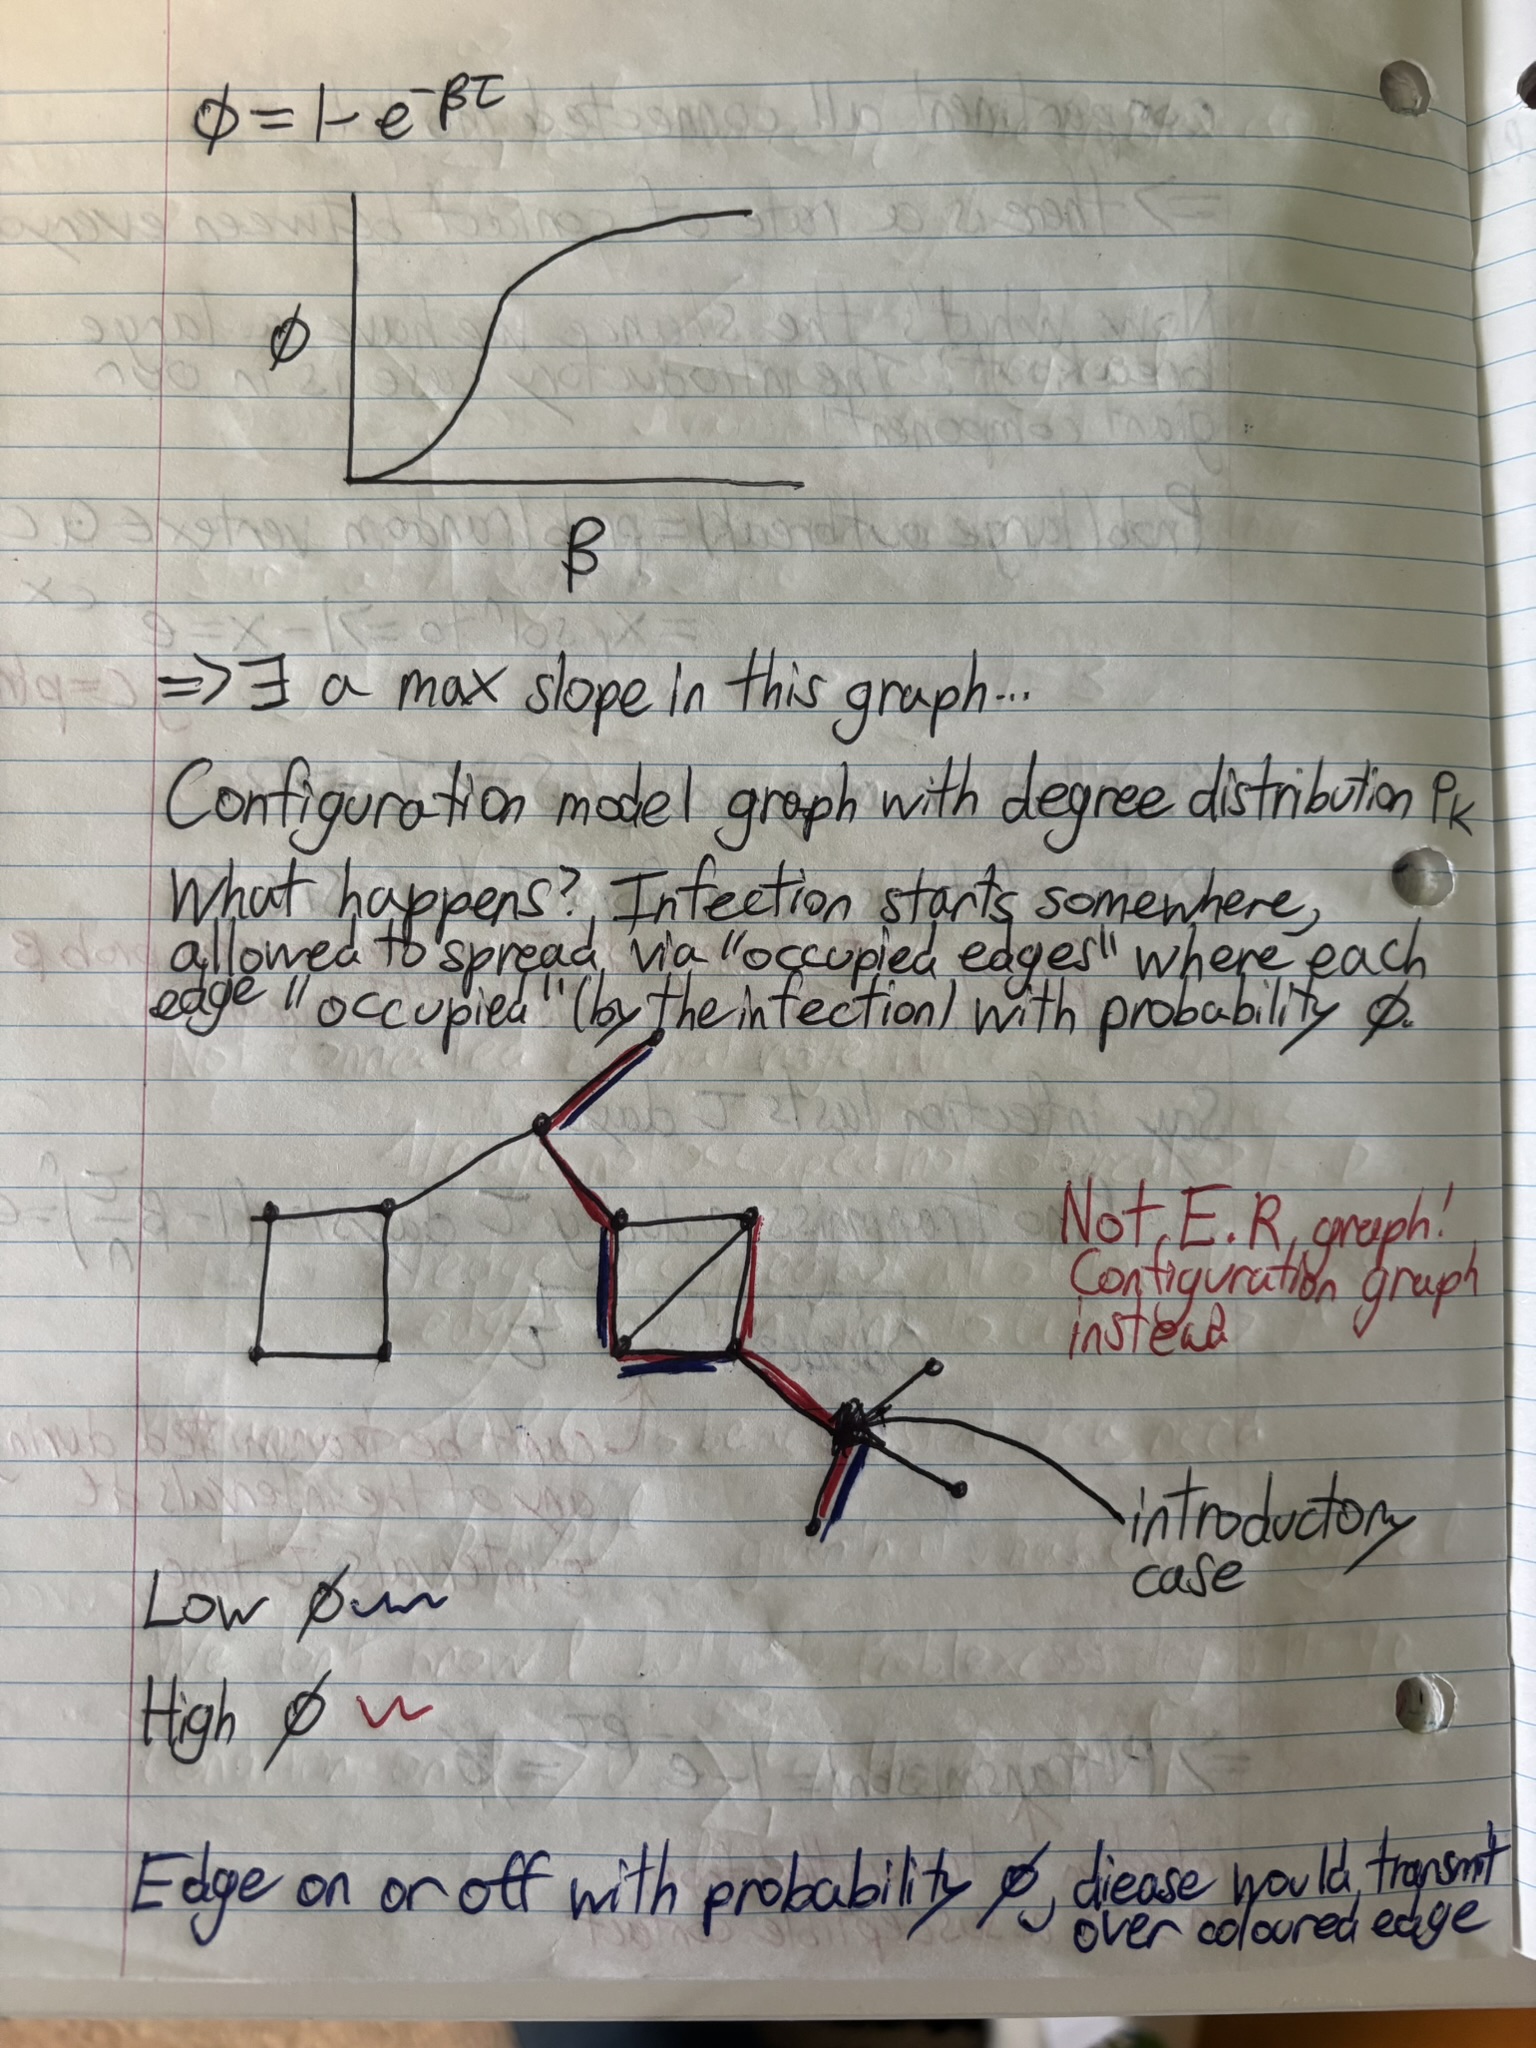 ϕ = 1 - e^{-βτ}
ϕ
β
=> ∃ a max slope in this graph...
Configuration model graph with degree distribution P_K
What happens? Infection starts somewhere,
allowed to spread via "occupied edges" where each
edge "occupied" (by the infection) with probability ϕ.
Not E.R. graph!
Configuration graph
instead
introductory
case
Low ϕ
High ϕ
Edge on or off with probability ϕ, diease would transmit
over coloured edge